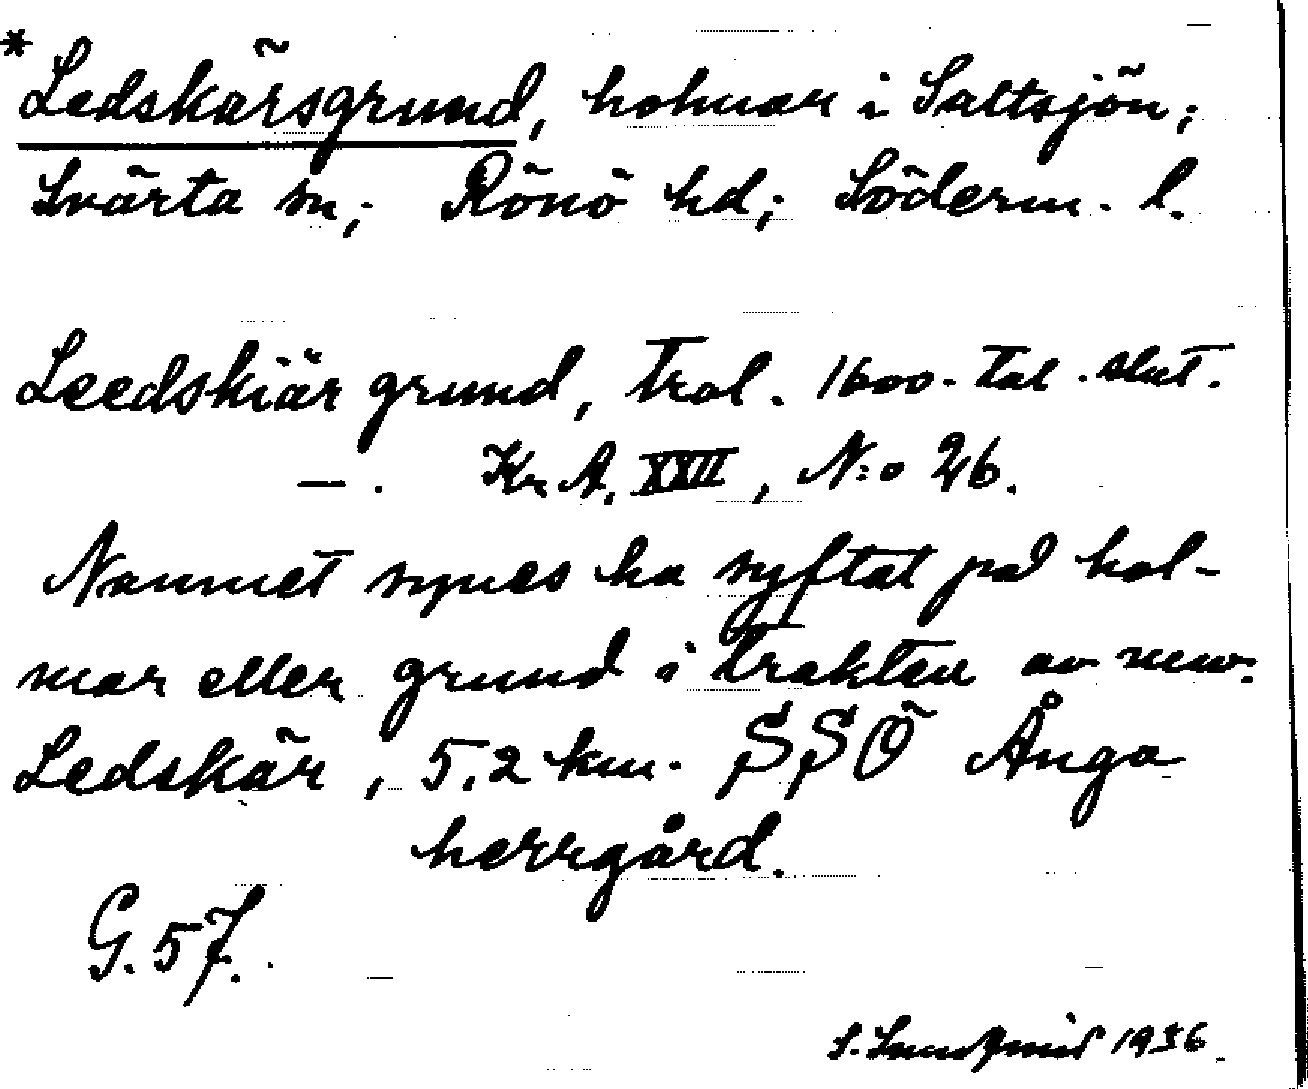 *Ledskärsgrund, holmar i Saltsjön;
Svärta sn; Rönö hd; Söderm. l.
Leedskiär grund, trol. 1600-tal. slut.
—. Kr. A. XXII, N:o 26.
Namnet synes ha syftat på hol-
mar eller grund i trakten av nuv.
Ledskär, 5,2 km. SSÖ Ånga
herrgård.
G. 57.
S. 1936